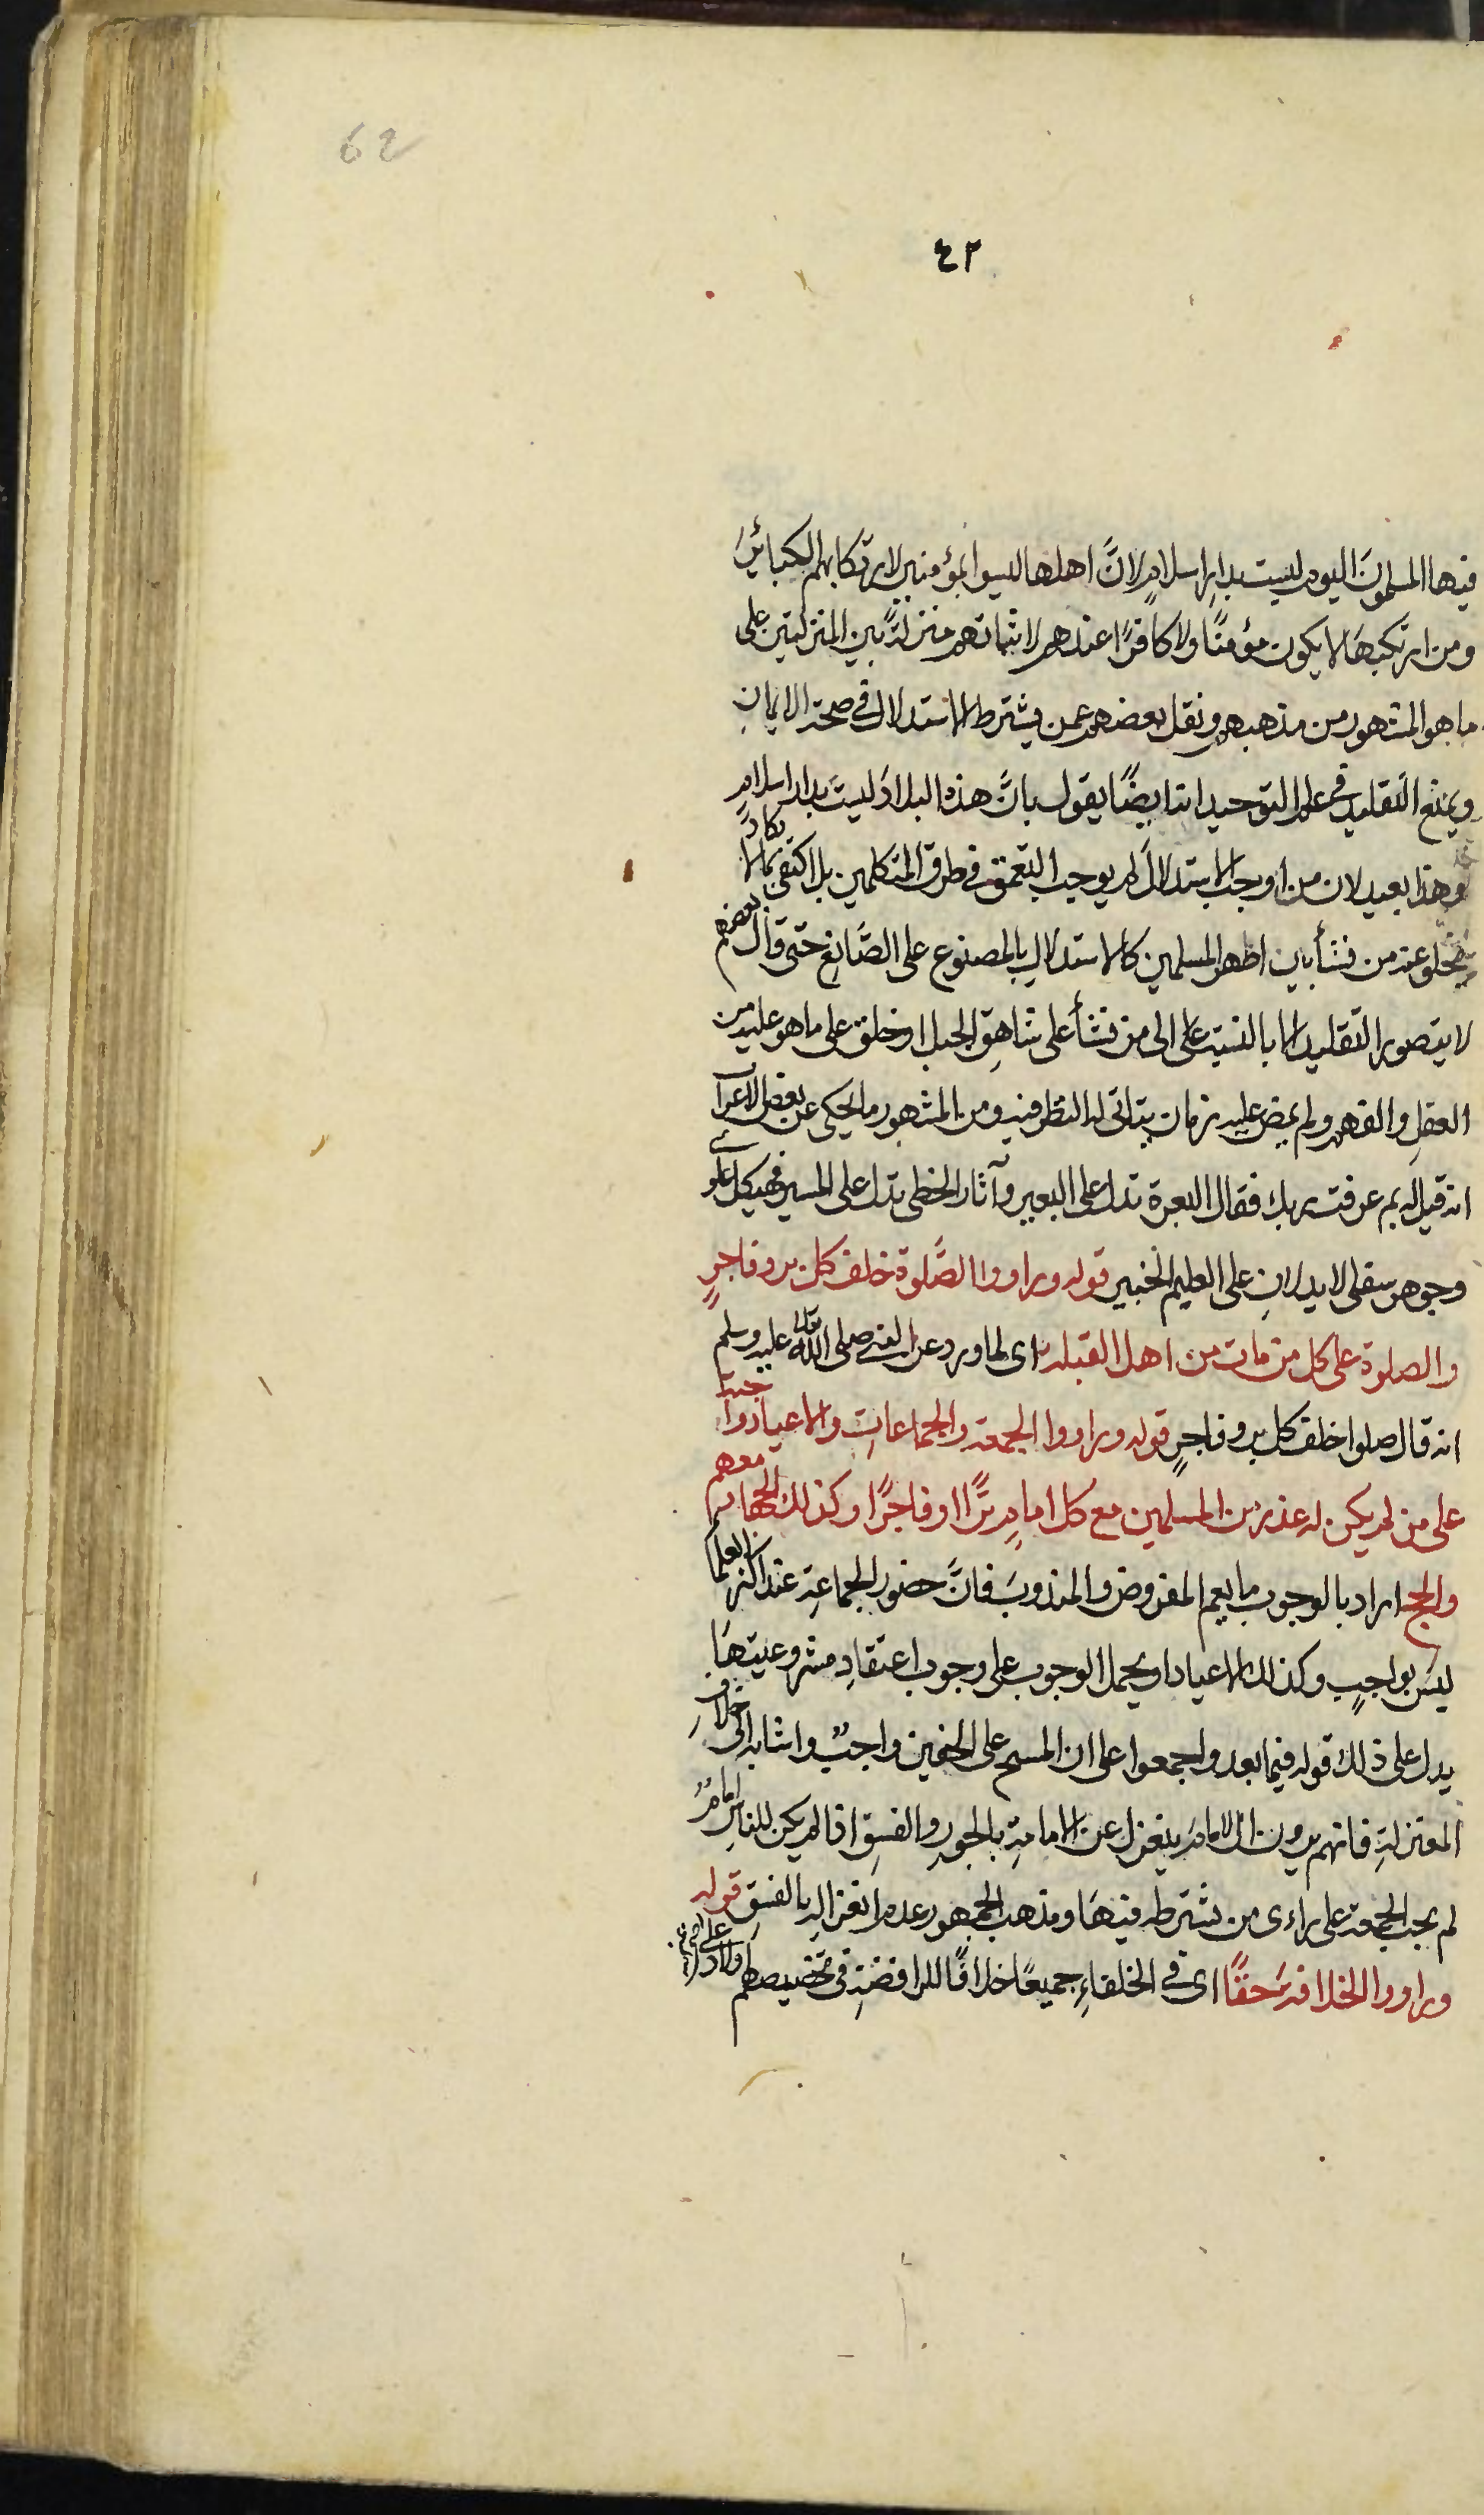 62
٤٢
فيها المسلمون اليوم ليست بدار اسلام لانَّ اهلها ليسوا بمؤمنين لارتكابهم الكبائرَ
ومن ارتكبها لا يكون مؤمنًا ولا كافرًا عندهم لاثباتهم منزلةً بين المنزلتين على
ما هو المشهور من مذهبهم ونقل بعضهم عمن يشترط الاستدلال في صحة الايمان
ويمنع التقليد في علم التوحيد انه ايضًا يقول بانَّ هذه البلادَ ليستَ بدار اسلامٍ
وهذا بعيد لان من اوجب الاستدلالَ لم يوجب التعمق في طرق المتكلمين بل اكتفى بما لا يكادُ
يخلو عنه من نشأ بين اظهر المسلمين كالاستدلالِ بالمصنوع على الصَّانِع حتى قال بعضهم
لا يتصور التقليد الا بالنسبة الى من نشأ على شاهِق الجبل او خلق على ما هو عليه من
العقلِ والفهم ولم يمض عليه زمان يتاتى له النظر فيه ومن المشهور ما يحكى عن بعض الاعرآ
انه قيل له بم عرفت ربك فقال البعرة تدل على البعير وآثار الخطى تدل على المسير فهيكل علو
وجوهر سفلى لا يدلانِ على العليم الخبير قوله وراووا الصَّلوة خلف كل بر وفاجرٍ
والصلوة على كل من مات من اهل القبله اى لما ورد عن النبي صلى الله تعالى عليه وسلم
انه قال صلوا خلف كل بر وفاجرٍ قوله وراووا الجمعة والجماعاتِ والاعياد واجبة
على من لم يكن له عذر من المسلمين مع كل امامٍ برًّا او فاجرًا وكذلك الجهاد معهم
والحج اراد بالوجوب ما يعم المفروض والمندوبَ فانَّ حضور الجماعةِ عند اكثر العلما
ليسَ بواجبٍ وكذلك الاعياد او يحمل الوجوب على وجوب اعتقادِ مشروعيتهَا
يدل على ذلك قوله فيما بعد واجمعوا على ان المسح على الخفين واجبٌ واشار الى خلاف
المعتزلةِ فانهم يرون ان الامامَ ينعزل عن الامامةِ بالجورِ والفسق اذا لم يكن للناسِ امامٌ
لم يجب الجمعة على راءى من يشترطه فيهَا ومذهب الجمهور عدم انعزالهِ بالفسقِ قوله
وراووا الخلافةَ حقًّا اى في الخلفاءِ جميعًا خلافًا للرافضةِ في تخصيصهم اولاد علي